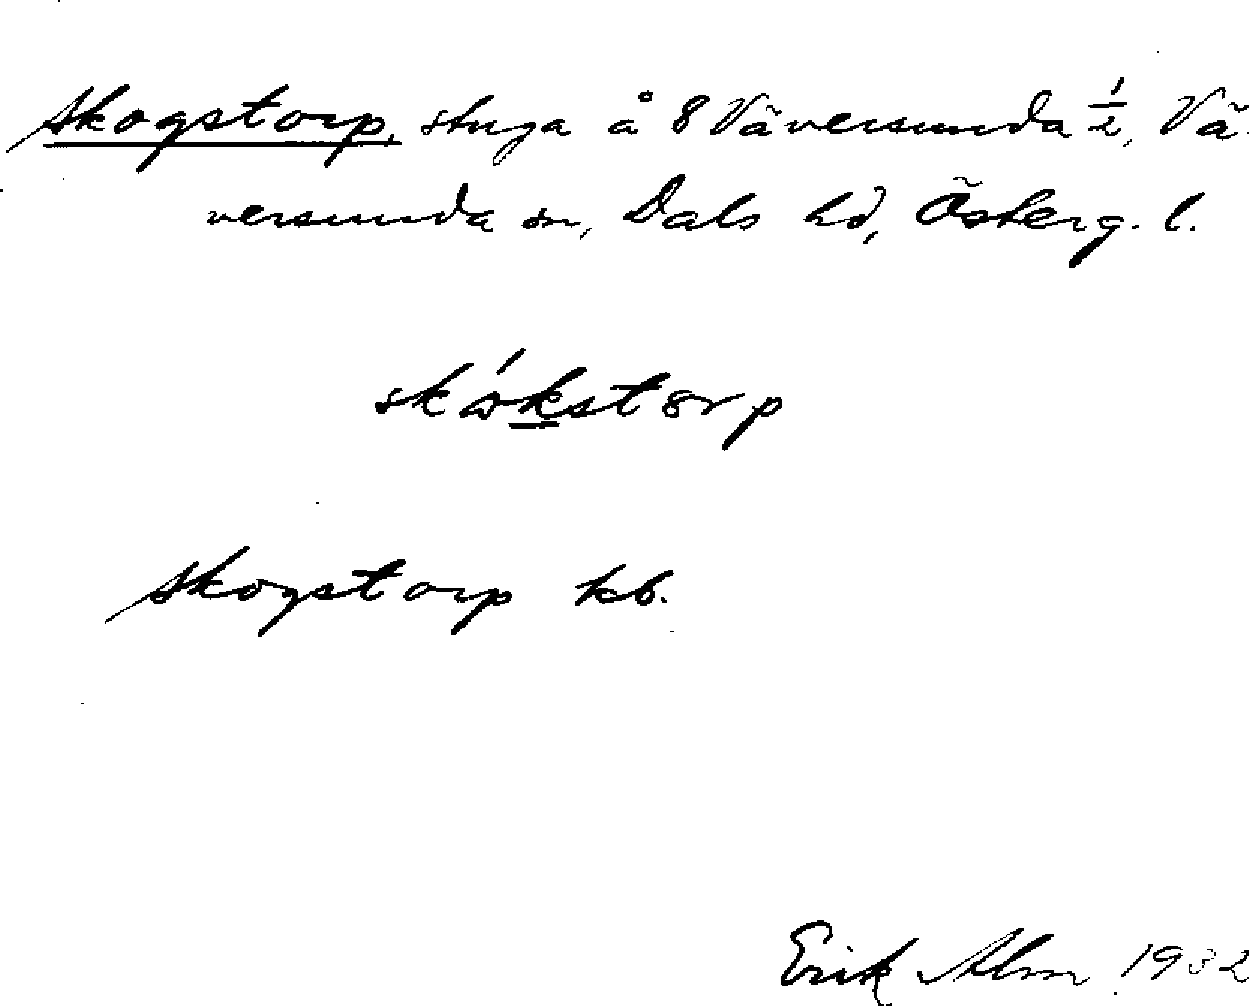 Skogstorp, stuga å 8 Väversunda ½, Vä-
versunda sn, Dals hd, Österg. l.
skó̀kstorp
Skogstorp kb.
Erik Alm 1932